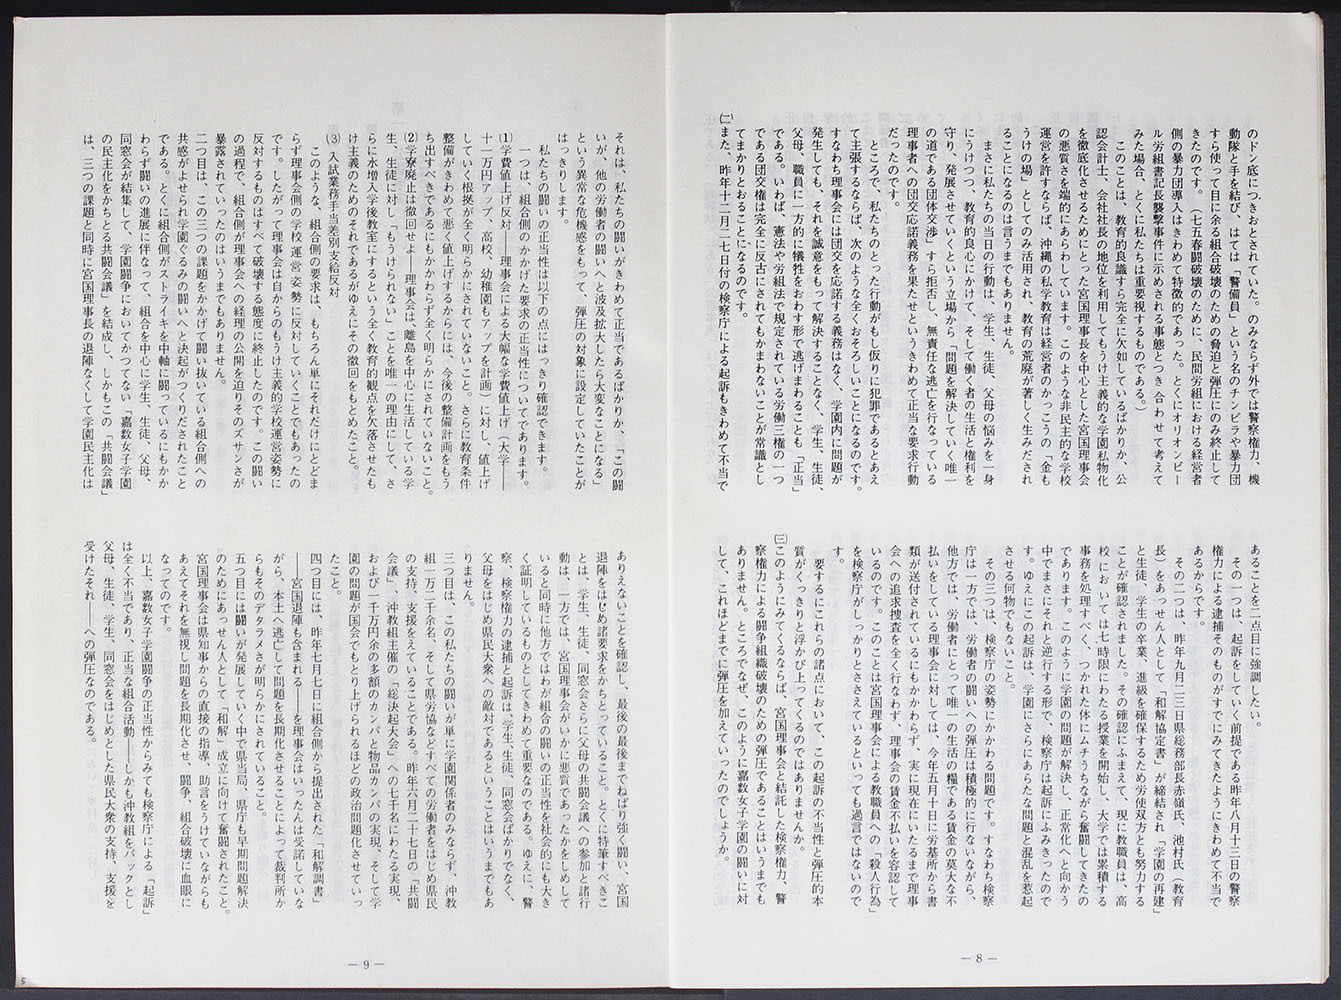 のドン底につきおとされていた。のみならず外では警察権力、機
動隊と手を結び、はては「警備員」という名のチンピラや暴力団
すら使って目に余る組合破壊のための脅迫と弾圧にのみ終止して
きたのです。(七五春闘破壊のために、民間労組における経営者
側の暴力団導入はきわめて特徴的であった。とくにオリオンビー
ル労組書記長襲撃事件に示めされる事態とつき合わせて考えて
みた場合、とくに私たちは重要視するものである。)
このことは、教育的良識すら完全に欠如しているばかりか、公
認会計士、会社社長の地位を利用してもうけ主義的な学園私物化
を徹底化させるためにとった宮国理事長を中心とした宮国理事会
の悪質さを端的にあらわしています。このような非民主的な学校
運営を許すならば、沖縄の私学教育は経営者のかっこうの「金も
うけの場」としてのみ活用され、教育の荒廃が著しく生みだされ
ることになるのは言うまでもありません。
まさに私たちの当日の行動は、学生、生徒、父母の悩みを一身
にうけつつ、教育的良心にかけて、そして働く者の生活と権利を
守り、発展させていくという立場から「問題を解決していく唯一
の道である団体交渉」すら拒否し、無責任な逃亡を行なっている
理事者への団交応諾義務を果たせというきわめて正当な要求行動
だったのです。
ところで、私たちのとった行動がもし仮りに犯罪であるとあえ
て主張するならば、次のような全くおそろしいことになるのです。
すなわち理事会には団交を応諾する義務はなく、学園内に問題が
発生しても、それを誠意をもって解決することなく、学生、生徒、
父母、職員に一方的に犠牲をおわす形で逃げまわることも「正当」
である。いわば、憲法や労組法で規定されている労働三権の一つ
である団交権は完全に反古にされてもかまわないことが常識とし
てまかりとおることになるのです。
(二)また、昨年十二月二七日付の検察庁による起訴もきわめて不当で
あることを二点目に強調したい。
その一つは、起訴をしていく前提である昨年八月十三日の警察
権力による逮捕そのものがすでにみてきたようにきわめて不当で
あるからです。
その二つは、昨年九月二三日県総務部長赤嶺氏、池村氏(教育
長)をあっせん人として「和解協定書」が締結され「学園の再建」
と生徒、学生の卒業、進級を確保するため労使双方とも努力する
ことが確認されました。その確認にふまえて、現に教職員は、高
校においては七時限にわたる授業を開始し、大学では累積する
事務を処理すべく、つかれた体にムチうちながら奮闘してきたの
であります。このように学園の問題が解決し、正常化へと向かう
中でまさにそれと逆行する形で、検察庁は起訴にふみきったので
す。ゆえにこの起訴は、学園にさらにあらたな問題と混乱を惹起
させる何物でもないこと。
その三つは、検察庁の姿勢にかかわる問題です。すなわち検察
庁は一方では、労働者の闘いへの弾圧は積極的に行ないながら、
他方では、労働者にとって唯一の生活の糧である賃金の莫大な不
払いをしている理事会に対しては、今年五月十日に労基所から書
類が送付されているにもかかわらず、実に現在にいたるまで理事
会への追求捜査を全く行なわず、理事会の賃金不払いを容認して
いるのです。このことは宮国理事会による教職員への「殺人行為」
を検察庁がしっかりとささえているといっても過言ではないので
す。
要するにこれらの諸点において、この起訴の不当性と弾圧的本
質がくっきりと浮かび上ってくるのではありませんか。
(三)このようにみてくるならば、宮国理事会と結託した検察権力、警
察権力による闘争組織破壊のための弾圧であることはいうまでも
ありません。ところでなぜ、このように嘉数女子学園の闘いに対
して、これほどまでに弾圧を加えていったのでしょうか。
— 8 —
それは、私たちの闘いがきわめて正当であるばかりか、「この闘
いが、他の労働者の闘いへと波及拡大したら大変なことになる」
という異常な危機感をもって、弾圧の対象に設定していたことが
はっきりします。
私たちの闘いの正当性は以下の点にはっきり確認できます。
一つは、組合側のかかげた要求の正当性についてであります。
(1)学費値上げ反対——理事会による大幅な学費値上げ(大学——
十一万円アップ、高校、幼稚園もアップを計画)に対し、値上げ
していく根拠が全く明らかにされていないこと。さらに教育条件
整備がきわめて悪く値上げするからには、今後の整備計画をもう
ち出すべきであるにもかかわらず全く明らかにされていないこと。
(2)学寮廃止は徹回せよ——理事会は、離島を中心に生活している学
生、生徒に対し「もうけられない」ことを唯一の理由にして、さ
らに水増入学後教室にするという全く教育的観点を欠落させたも
け主義のためのそれであるがゆえにその徹回をもとめたこと。
(3)入試業務手当差別支給反対
このような、組合側の要求は、もちろん単にそれだけにとどま
らず理事会側の学校運営姿勢に反対していくことでもあったの
です。したがって理事会は自からのもうけ主義的学校運営姿勢に
反対するものはすべて破壊する態度に終止したのです。この闘い
の過程で、組合側が理事会への経理の公開を迫りそのズサンさが
暴露されていったのはいうまでもありません。
二つ目は、この三つの課題をかかげて闘い抜いている組合側への
共感がよせられ学園ぐるみの闘いへと決起がつくりだされたこと
である。とくに組合側がストライキを中軸に闘っているにもかか
わらず闘いの進展に伴なって、組合を中心に学生、生徒、父母、
同窓会が結集して、学園闘争においてかつてない「嘉数女子学園
の民主化をかちとる共闘会議」を結成し、しかもこの「共闘会議」
は、三つの課題と同時に宮国理事長の退陣なくして学園民主化は
ありえないことを確認し、最後の最後までねばり強く闘い、宮国
退陣をはじめ諸要求をかちとっていること。とくに特筆すべきこ
とは、学生、生徒、同窓会さらに父母の共闘会議への参加と諸行
動は、一方では、宮国理事会がいかに悪質であったかをしめして
いると同時に他方ではわが組合の闘いの正当性を社会的にも大き
く証明しているものとしてきわめて重要なのである。ゆえに、警
察、検察権力の逮捕と起訴は、学生、生徒、同窓会ばかりでなく、
父母をはじめ県民大衆への敵対であるということはいうまでもあ
りません。
三つ目は、この私たちの闘いが単に学園関係者のみならず、沖教
組一万二千余名、そして県労協などすべての労働者をはじめ県民
の支持、支援をえていることである。昨年六月二十七日の「共闘
会議」、沖教組主催の「総決起大会」への七千名にわたる実現、
および一千万円余の多額のカンパと物品カンパの実現、そして学
園の問題が国会でもとり上げられるほどの政治問題化させていっ
たこと。
四つ目には、昨年七月七日に組合側から提出された「和解調書」
——宮国退陣も含まれる——を理事会はいったんは受諾していな
がら、本土へ逃亡して問題を長期化させることによって裁判所か
らもそのデタラメさが明らかにされていること。
五つ目には闘いが発展していく中で県当局、県庁も早期問題解決
のためにあっせん人として「和解」成立に向けて奮闘されたこと。
宮国理事会は県知事からの直接の指導、助言をうけていながらも
あえてそれを無視し問題を長期化させ、闘争、組合破壊に血眼に
なってのです。
以上、嘉数女子学園闘争の正当性からみても検察庁による「起訴」
は全く不当であり、正当な組合活動——しかも沖教組をバックとし
父母、学生、生徒、同窓会をはじめとした県民大衆の支持、支援を
受けたそれ——への弾圧なのである。
— 9 —
5